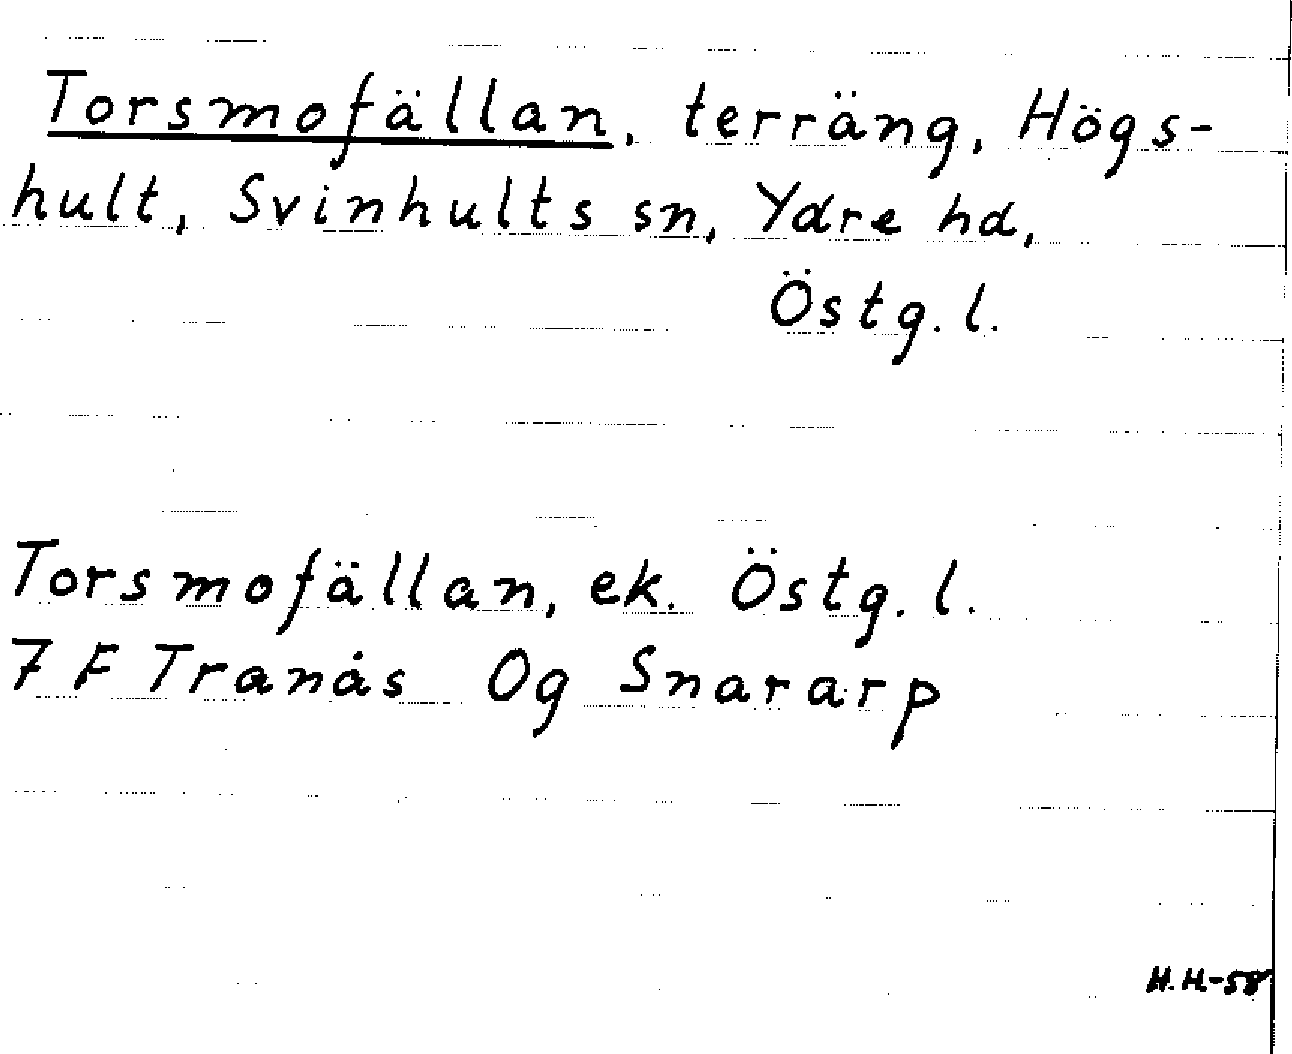 Torsmofällan, terräng, Högs-
hult, Svinhults sn, Ydre hd,
Östg. l.
Torsmofällan, ek. Östg. l.
7 F Tranås Og Snararp
H.H.-58